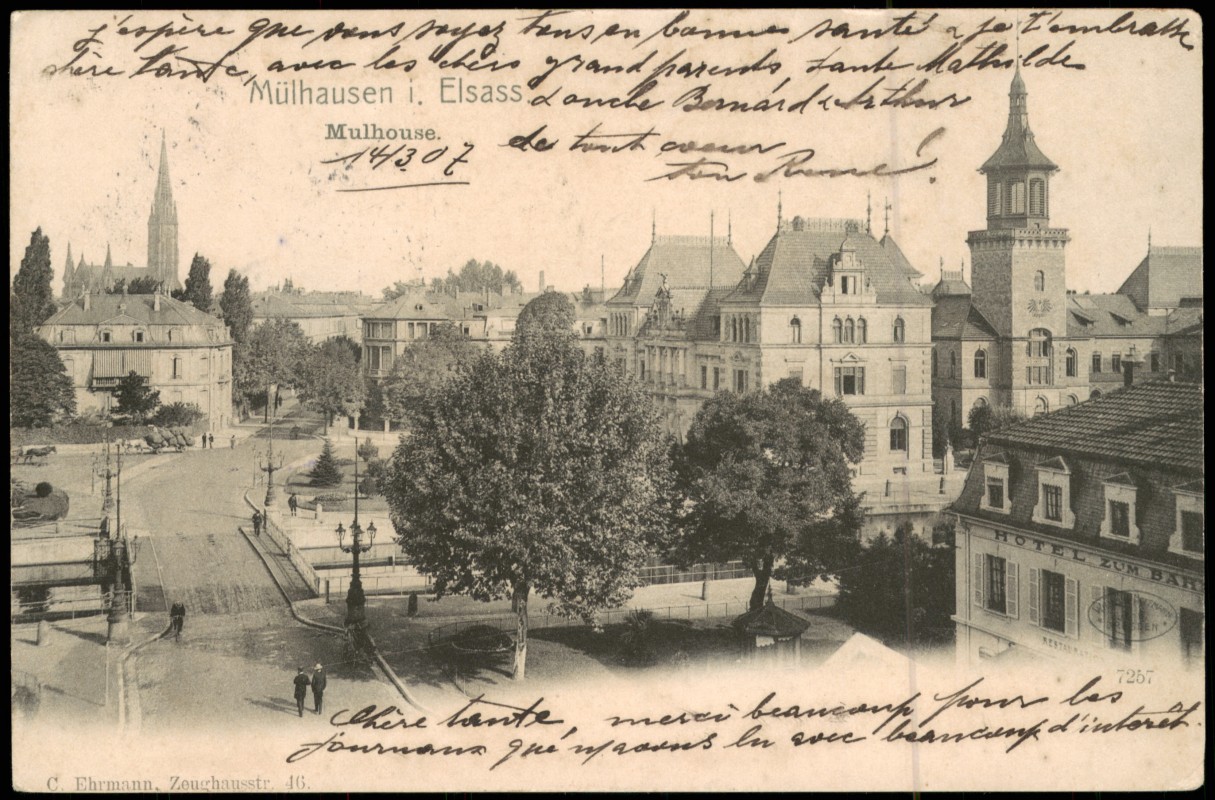 j'espère que vous soyez tous en bonne santé & je t'embrasse
chère tante, avec les chers grand parents, tante Mathilde
Mülhausen i. Elsass
& oncle Bernard & Arthur
Mulhouse.
de tout coeur
14/3 07
ton René!
HOTEL ZUM BAH
7257
Chère tante, merci beaucoup pour les
journaux que nous avons lu avec beaucoup d'interêt.
C. Ehrmann, Zeughausstr. 46.